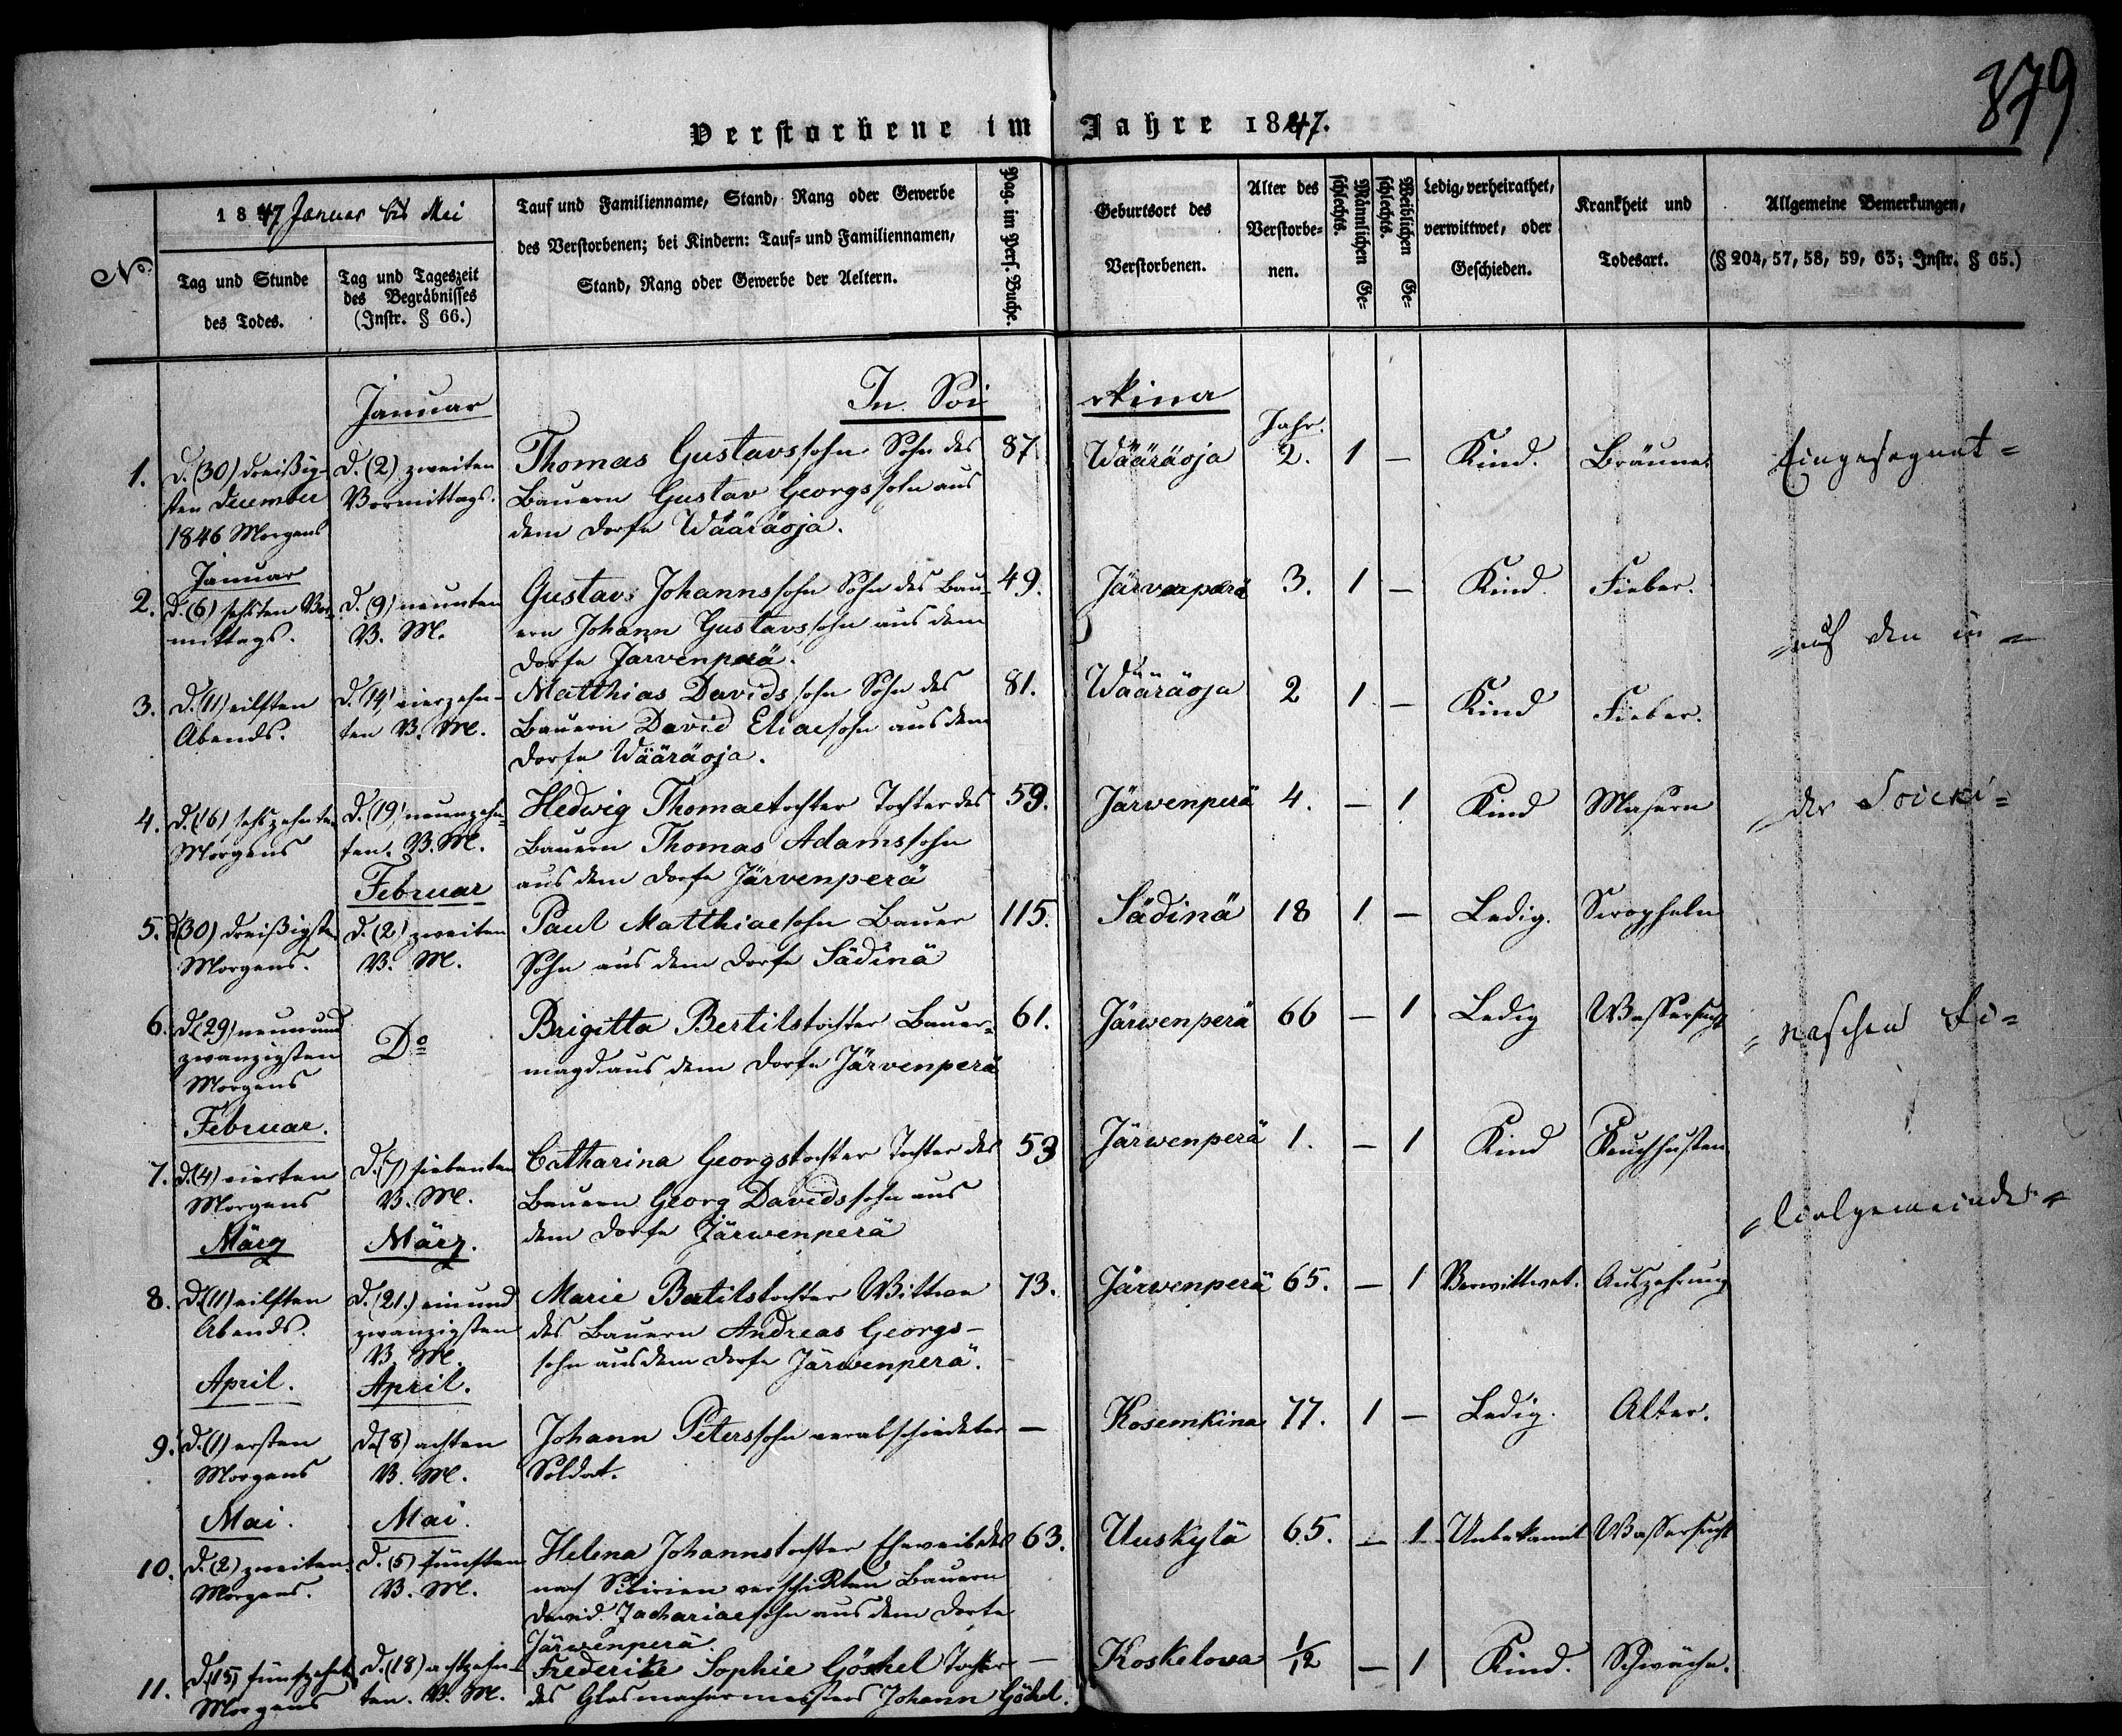 379
Verstorbene im Jahre 1847.
No.
1847 Januar bis Mai
Tag und Stunde
des Todes.
Tag und Tageszeit
des Begräbnisses
(Instr. § 66.)
Tauf und Familienname, Stand, Rang oder Gewerbe
des Verstorbenen; bei Kindern: Tauf- und Familiennamen,
Stand, Rang oder Gewerbe der Aeltern.
Pag. im Pers. Buche.
Geburtsort des
Verstorbenen.
Alter des
Verstorbe-
nen.
Männlichen Ge-
schlechts.
Weiblichen Ge-
schlechts.
Ledig, verheirathet,
verwittwet, oder
Geschieden.
Krankheit und
Todesart.
Allgemeine Bemerkungen,
(§ 204, 57, 58, 59, 63; Instr. § 65.)
Januar
In Soi rkina
Jahr.
1. d. (30) dreißig- d. (2) zweiten Thomas Gustavssohn Sohn des 87 Wääräoja 2. 1 — Kind. Bräune. Eingesegnet =
sten December Vormittags. Bauern Gustav Georgssohn aus
1846 Morgens dem Dorfe Wääräoja.
Januar
2. d. (6) sechsten Vor- d. (9) neunten Gustav Johannssohn Sohn des Bau- 49. Järvenperä 3. 1 — Kind. Fieber.
mittags. V. M. ern Johann Gustavssohn aus dem = auf den in =
Dorfe Järvenperä.
3. d. (11) eilften d. (14) vierzehn- Matthias Davidssohn Sohn des 81. Wääräoja 2 1 — Kind Fieber.
Abends. ten V. M. Bauern David Eliaesohn aus dem
Dorfe Wääräoja.
4. d. (16) sechszehnten d. (19) neunzehn- Hedwig Thomaetochter Tochter des 59. Järvenperä 4. — 1 Kind Masern = der Soicki =
Morgens ten. V. M. Bauern Thomas Adamssohn
Februar aus dem Dorfe Järvenperä
5. d (30) dreißigsten d. (2) zweiten Paul Matthiaesohn Bauer 115. Sädinä 18 1 — Ledig. Scropheln
Morgens. V. M. Sohn aus dem Dorfe Sädinä
6. d (29) neunund Do Brigitta Bertilstochter Bauer- 61. Järwenperä 66 — 1 Ledig Wassersucht = naschen Fi =
zwanzigsten magd aus dem Dorfe Järvenperä
Morgens
Februar.
7. d. (4) vierten d. (7) siebenten Catharina Georgstochter Tochter des 53 Järwenperä 1. — 1 Kind Keuchhusten
Morgens V. M. Bauern Georg Davidssohn aus = lialgemeinde =
März März. dem Dorfe Järwenperä
8. d. (11) eilften d. (21.) einund Marie Bertilstochter Wittwe 73. Järwenperä 65. — 1 Verwittwet. Auszehrung
Abends. zwanzigsten des Bauern Andreas Georgs-
V. M. sohn aus dem Dorfe Järwenperä.
April. April.
9. d. (1) ersten d. (8) achten Johann Peterssohn verabschiedeter — Kosemkina 77. 1 — Ledig. Alter.
Morgens V. M. Soldat.
Mai. Mai.
10. d. (2) zweiten d. (5) fünften Helena Johannstochter Eheweib des 63. Uuskylä 65. — 1 Unbekannt Wassersucht
Morgens. V. M. nach Sibirien verschikten Bauern
David Zachariaesohn aus dem Dorfe
Järwenperä.
11. d. (15) fünfzehnt d. (18) achtzehn- Frederike Sophie Göshel Tochter — Koskelowa 1/12 — 1 Kind. Schwäche.
Morgens ten. V. M. des Glasmachermeisters Johann Göshel.